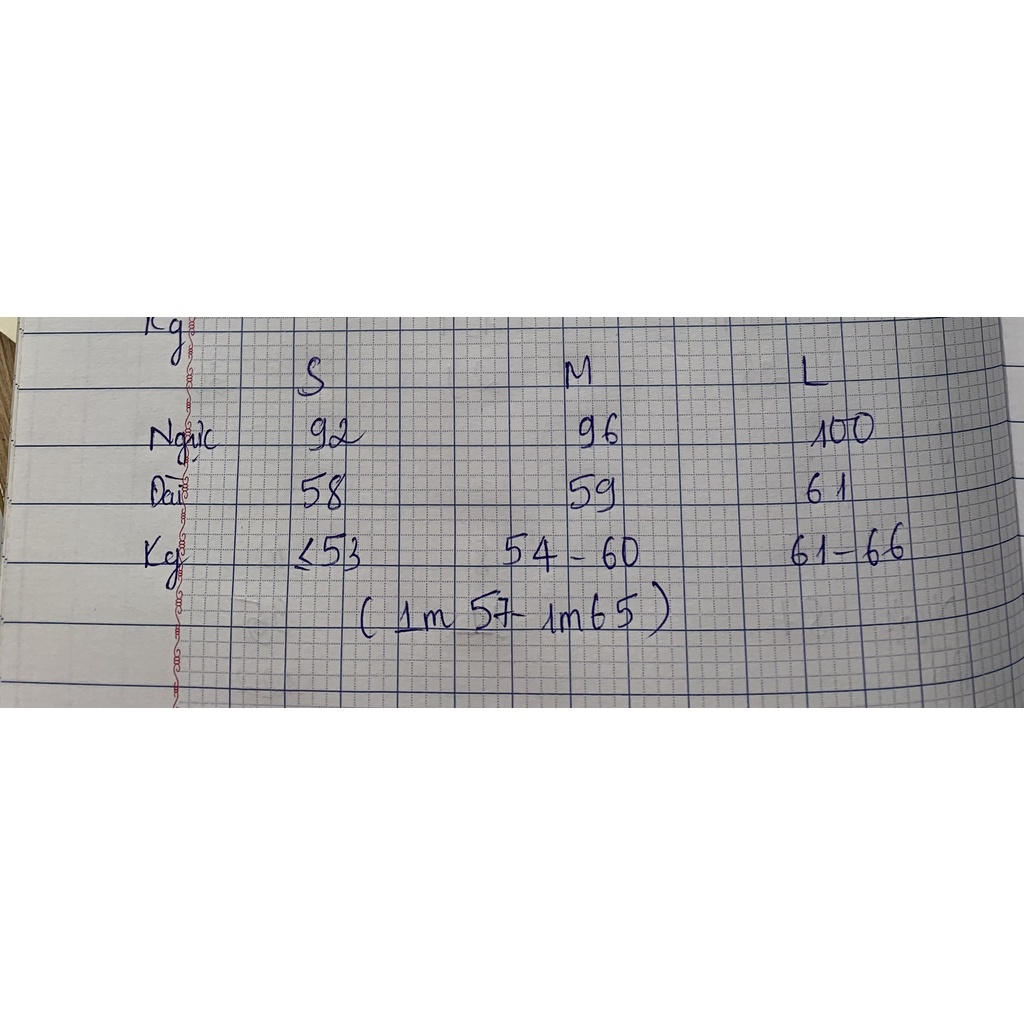 Kg
S M L
Ngực 92 96 100
Dài 58 59 61
Kg ≤53 54 - 60 61 - 66
(1m 57 - 1m65)